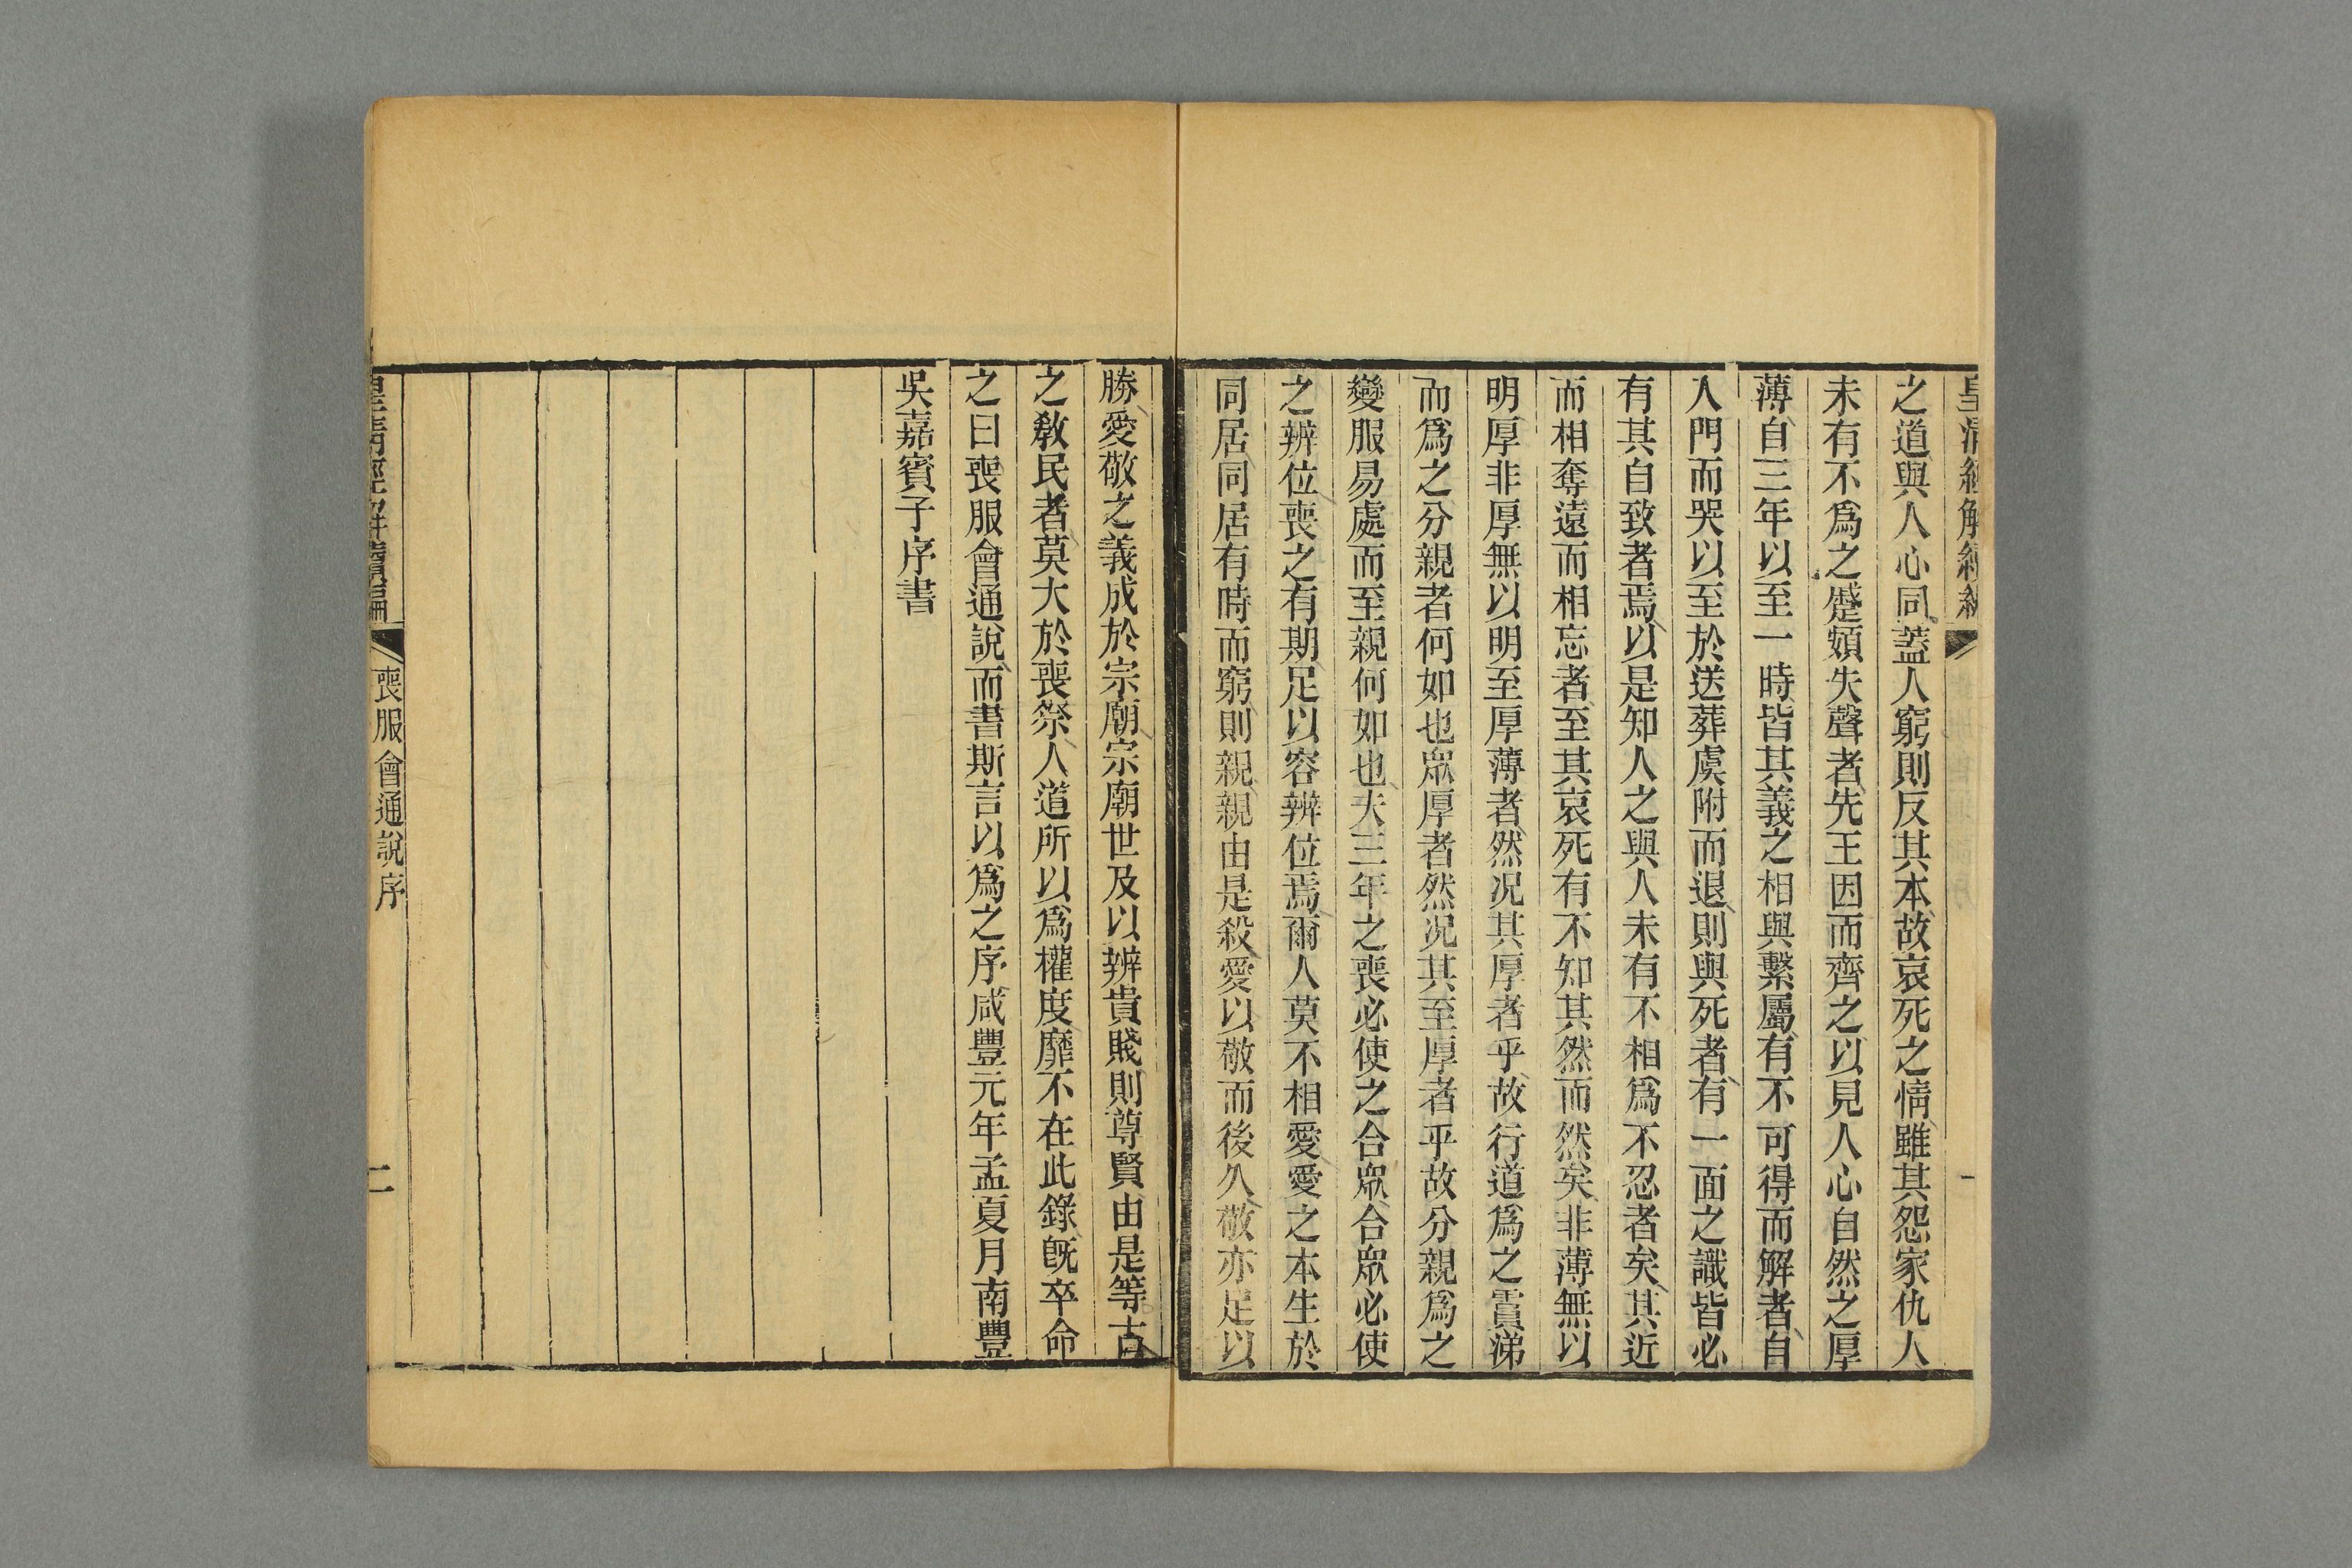 皇清經解續編
一
之道與人心同蓋人窮則反其本故哀死之情雖其怨家仇人
未有不爲之蹙頞失聲者先王因而齊之以見人心自然之厚
薄自三年以至一時皆其義之相與繫屬有不可得而解者自
入門而哭以至於送葬虞附而退則與死者有一面之識皆必
有其自致者焉以是知人之與人未有不相爲不忍者矣其近
而相奪遠而相忘者至其哀死有不知其然而然矣非薄無以
明厚非厚無以明至厚薄者然况其厚者乎故行道爲之霣涕
而爲之分親者何如也眾厚者然况其至厚者乎故分親爲之
變服易處而至親何如也夫三年之喪必使之合眾合眾必使
之辨位喪之有期足以容辨位焉爾人莫不相愛愛之本生於
同居同居有時而窮則親親由是殺愛以敬而後久敬亦足以
勝愛敬之義成於宗廟宗廟世及以辨貴賤則尊賢由是等古
之教民者莫大於喪祭人道所以爲權度靡不在此錄旣卒命
之曰喪服會通說而書斯言以爲之序咸豐元年孟夏月南豐
吳嘉賓子序書
皇清經解續編
喪服會通說序
二